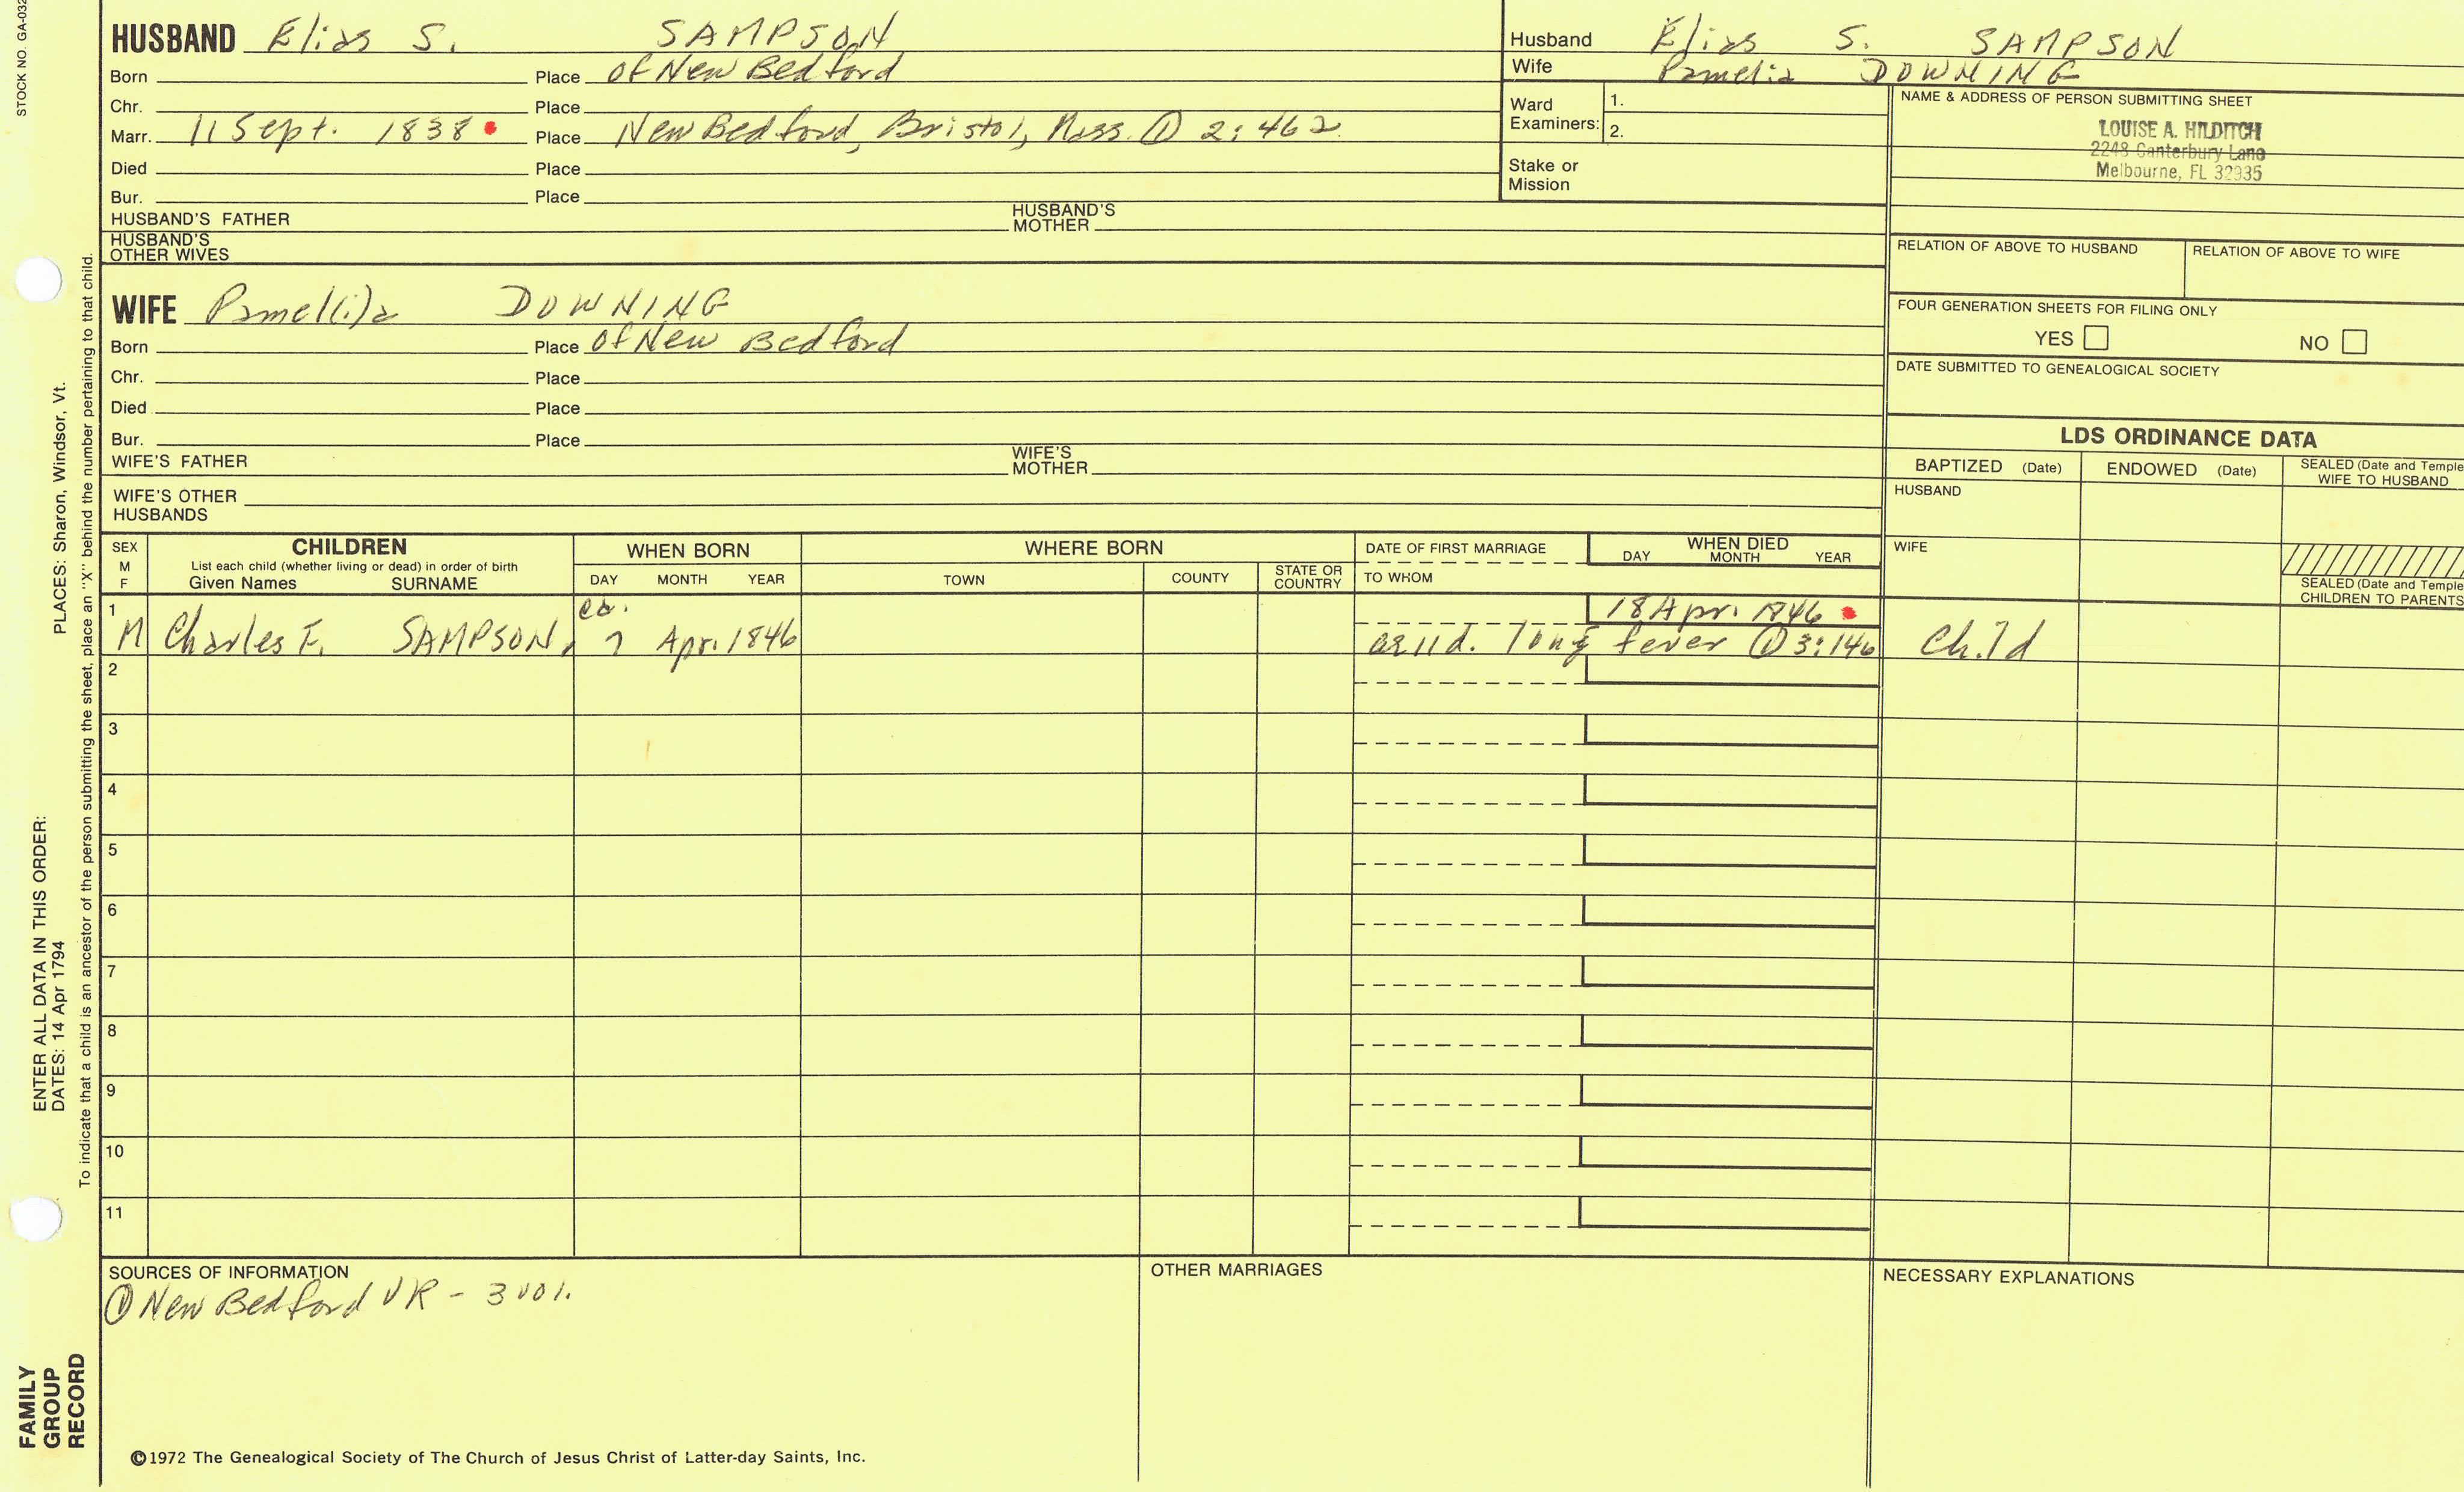 STOCK NO. GA-032
HUSBAND Elias S. SAMPSON
Born Place of New Bedford
Chr. Place
Marr. 11 Sept. 1838 Place New Bedford, Bristol, Mass. ① 2:462
Died Place
Bur. Place
HUSBAND'S FATHER HUSBAND'S MOTHER
HUSBAND'S OTHER WIVES
Husband Elias S. SAMPSON
Wife Pamelia DOWNING
Ward Examiners: 1.
2.
Stake or Mission
NAME & ADDRESS OF PERSON SUBMITTING SHEET
LOUISE A. HILDITCH
2248 Canterbury Lane
Melbourne, FL 32935
RELATION OF ABOVE TO HUSBAND RELATION OF ABOVE TO WIFE
FOUR GENERATION SHEETS FOR FILING ONLY
YES NO
DATE SUBMITTED TO GENEALOGICAL SOCIETY
WIFE Pamel(i)a DOWNING
Born Place of New Bedford
Chr. Place
Died Place
Bur. Place
WIFE'S FATHER WIFE'S MOTHER
WIFE'S OTHER HUSBANDS
LDS ORDINANCE DATA
BAPTIZED (Date) ENDOWED (Date) SEALED (Date and Temple
WIFE TO HUSBAND
HUSBAND
WIFE
SEALED (Date and Temple
CHILDREN TO PARENTS
SEX M F CHILDREN WHEN BORN WHERE BORN DATE OF FIRST MARRIAGE WHEN DIED
List each child (whether living or dead) in order of birth
Given Names SURNAME DAY MONTH YEAR TOWN COUNTY STATE OR COUNTRY TO WHOM DAY MONTH YEAR
1 ca. 18 Apr. 1846
M Charles F. SAMPSON, 7 Apr. 1846 ae 11d. lung fever ① 3:146 Child
2
3
4
5
6
7
8
9
10
11
SOURCES OF INFORMATION OTHER MARRIAGES NECESSARY EXPLANATIONS
① New Bedford VR - 3 vol.
©1972 The Genealogical Society of The Church of Jesus Christ of Latter-day Saints, Inc.
FAMILY GROUP RECORD
ENTER ALL DATA IN THIS ORDER:
DATES: 14 Apr 1794 PLACES: Sharon, Windsor, Vt.
To indicate that a child is an ancestor of the person submitting the sheet, place an "X" behind the number pertaining to that child.